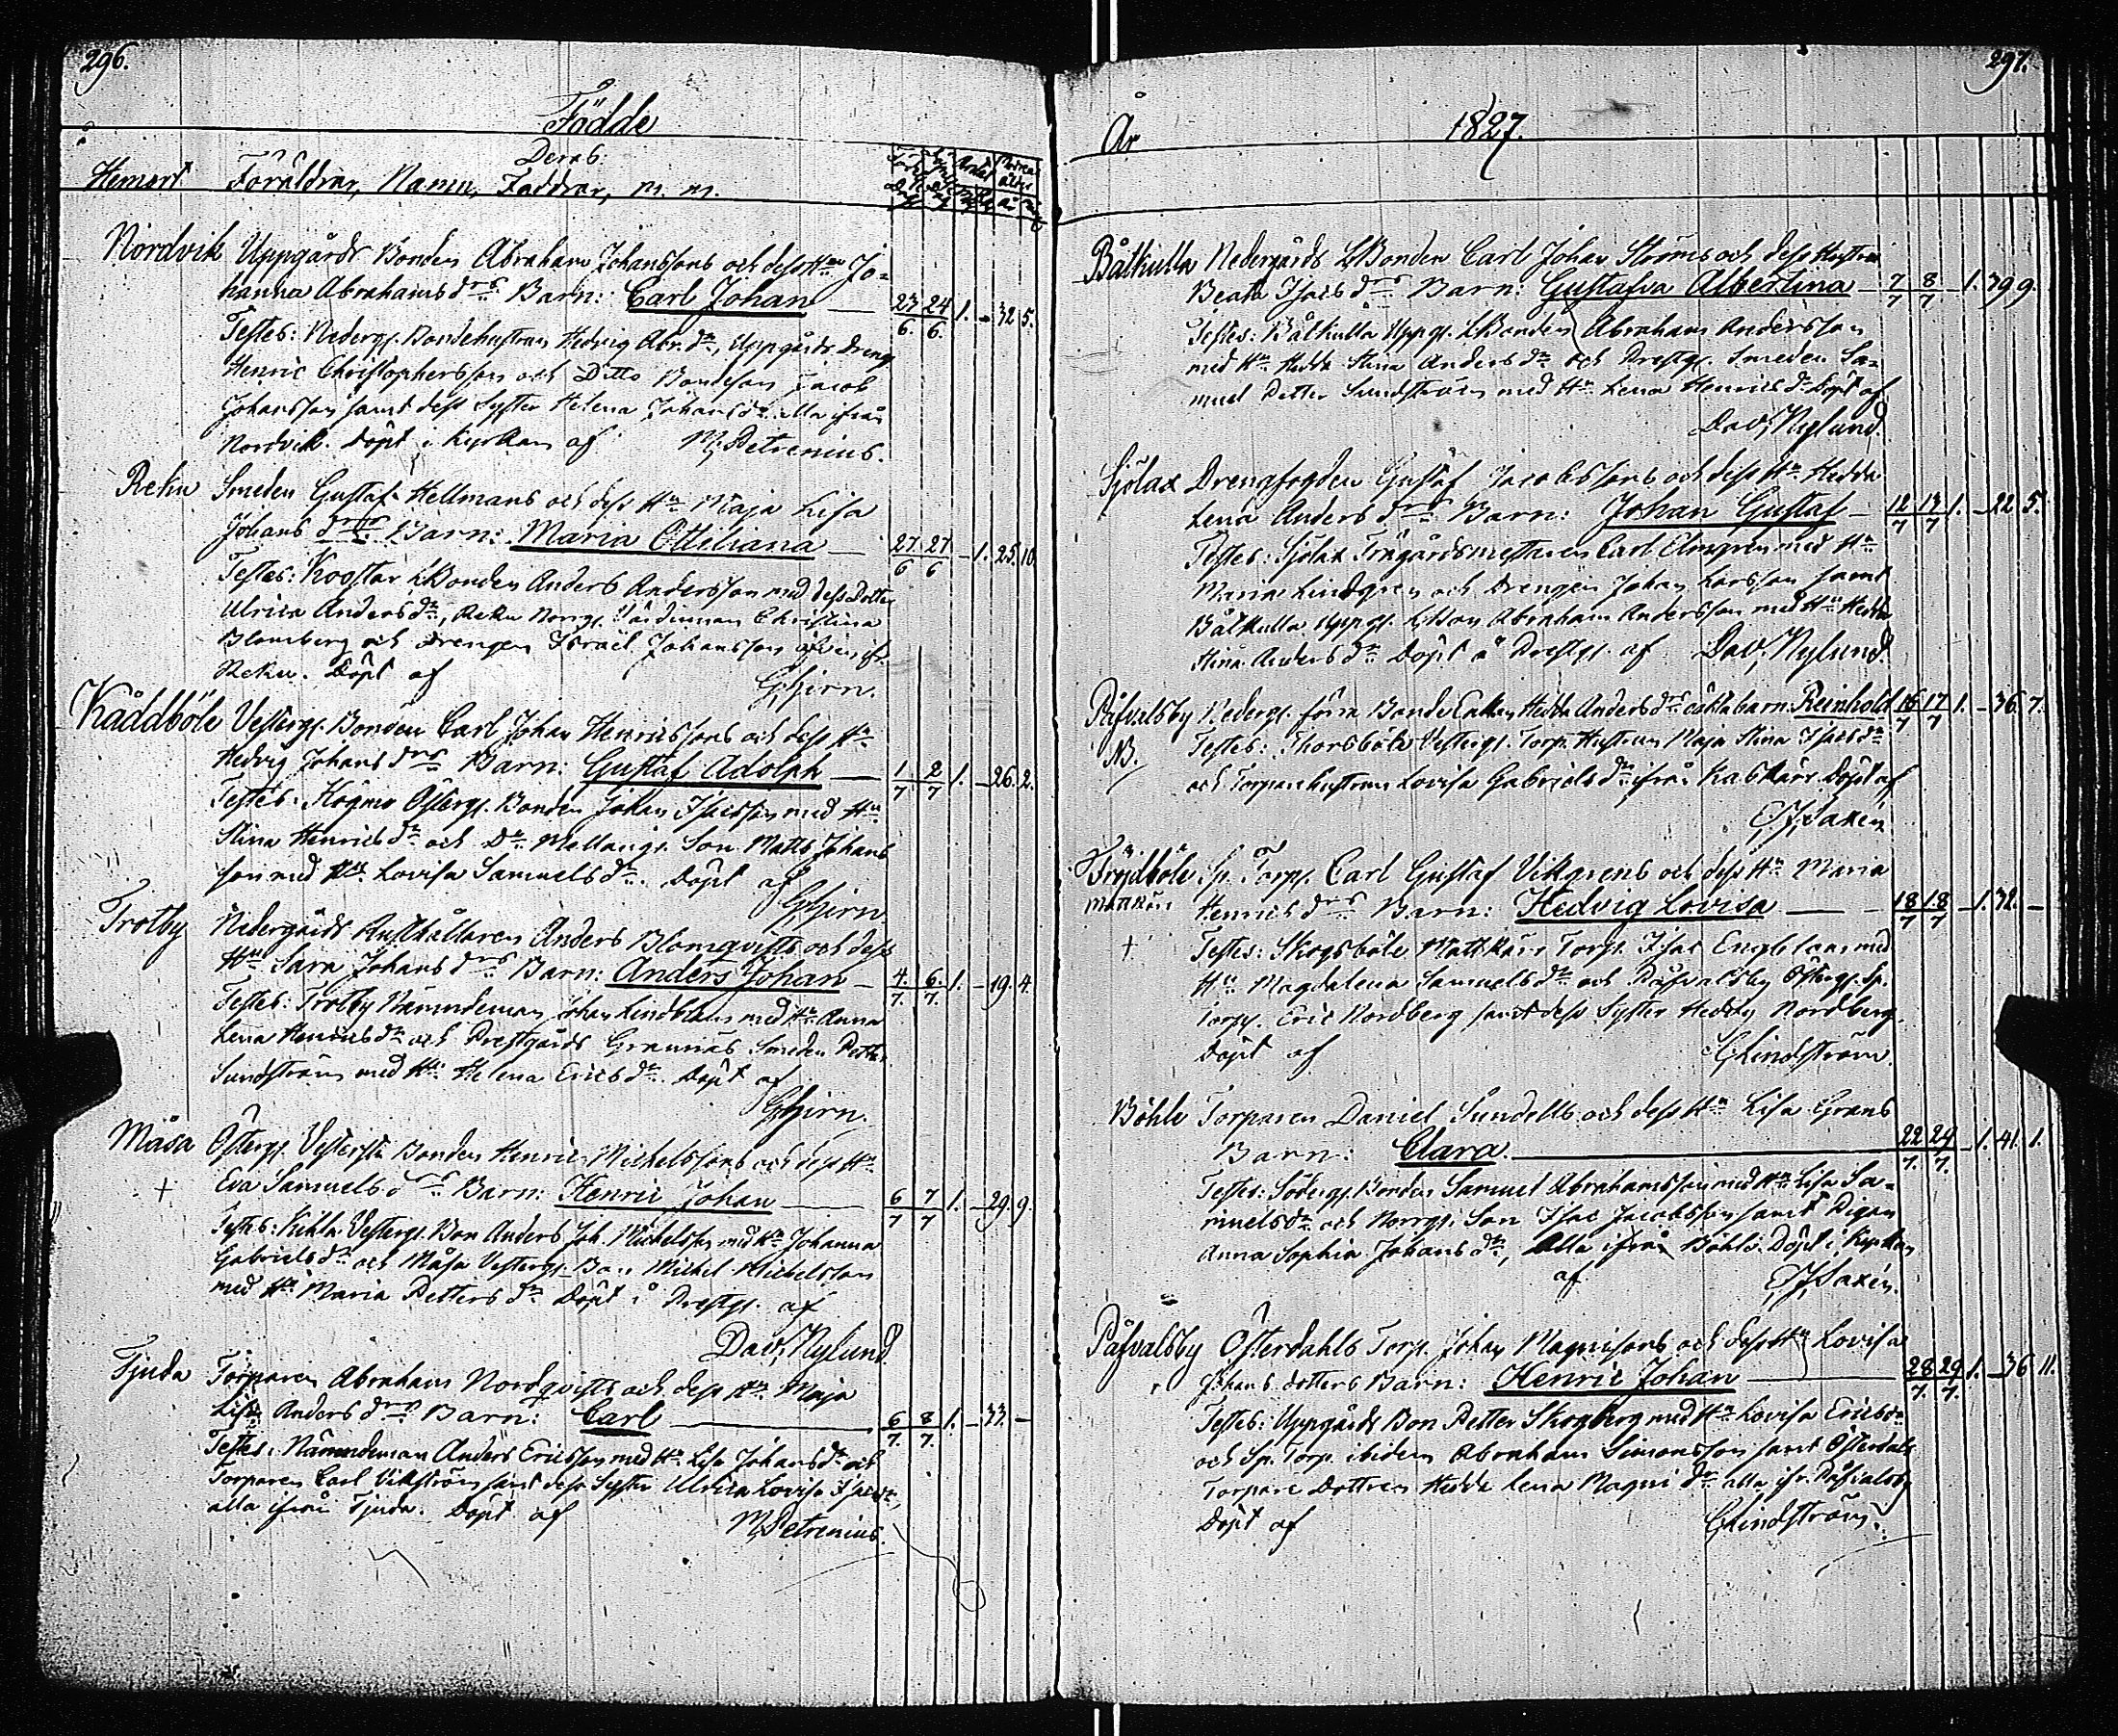 296.
Födde
Hemort Föräldrar, Deras Namn, Faddrar, m. m.
Nordvik Uppgårds Bonden Abraham Johanssons och dess Hu Jo-
hanna Abrahams drs Barn: Carl Johan 23/6. 24/6. 1. - 32. 5.
Testes: Nedergs. Bondehustrun Hedvig Abr. dr, Uppgårds Dreng
Henric Christophersson och Ditto Bondeson Jacob
Johansson samt dess Syster Helena Johans dr alla ifrån
Nordvik. Döpt i Kyrkan af M, Petrenius.
Reku Smeden Gustaf Hellmans och dess Hu Maja Lisa
Johans drs Barn: Maria Ottiliana 27/6 27/6 - 1. 25. 10
Testes: Bonden Anders Andersson med dess Dotter
Ulrica Anders dr, Reku Norrg. Christina
Blomberg och Drengen Israël Johansson ifr.
Reku. Döpt af G, Hjirn.
Kåddböle Vesterg. Bonden Carl Johan Henricssons och dess Hu
Hedvig Johans drs Barn: Gustaf Adolph 1/7 2/7 1. - 26. 2.
Testes: Högmo Österg. Bonden Johan Isacsson med Hu
Stina Henrics dr och Do Mellangs. Son Matts Johans
son med Hu Lovisa Samuels dr. Döpt af
G, Hjirn
Trotby Nedergårds Rusthållaren Anders Blomqvists och dess
Hu Sara Johans drs Barn: Anders Johan 4/7. 6/7. 1. - 19. 4.
Testes: Trotby Nämndeman Johan Lindblom med Hu Anna
Lena Henrics dr och Prestgårds Grannäs Smeden Petter
Sundström med Hu Helena Erics dr. Döpt af
G, Hjirn.
Måsa Österg. Bonden Henric Michelssons och dess Hu
+ Eva Samuels drs Barn: Henric Johan 6/7 7/7 1. - 29. 9.
Testes: Vesterg. Bon Anders Joh. Michelsson med Hu Johanna
Gabriels dr och Måsa Vesterg. Bon Michel Michelsson
med Hu Maria Petters dr Döpt å Prestg. af
Dav, Nylund
Tjuda Torparen Abraham Nordqvists och dess Hu Maja
Lisa Anders drs Barn: Carl 6/7. 8/7. 1. - 33. -
Testes: Nämndeman Anders Ericsson med Hu Lisa Johans dr och
Torparen Carl Vikström samt dess Syster Ulrica Lovisa Isacs dr,
alla ifrån Tjuda. Döpt af M, Petrenius.
297.
År 1827.
Båtkulla Nedergårds LBonden Carl Johan Ströms och dess Hustru
Beata Isacs drs Barn: Gustafva Albertina 7/7 8/7 - 1. 39 9.
Testes: Båtkulla Uppgs. LBonden Abraham Andersson
med Hu Hedda Stina Anders dr och Prestgs. Smeden Sa-
muel Petter Sundström med Hu Lena Henrics dr Döpt af
Dav, Nylund.
Sjölax Drengfogden Gustaf Jacobssons och dess Hu Hedda
Lena Anders drs Barn: Johan Gustaf 12/7 13/7 1. - 22. 5.
Testes: Sjölax Trägårdsmästaren Carl Elmgren med Hu
Maria Lindgren och Drengen Johan Larsson samt
Båtkulla Uppgs. LBon Abraham Andersson med Hu Hedda
Stina Anders dr Döpt å Prestgs. af Dav, Nylund.
Påfvalsby Nedergs. förra Bonde Enkan Hedda Anders drs oäkta barn: Reinhold 16/7 17/7 1. - 36. 7.
NB. Testes: Thorsböle Vestergs. Torp. Hustrun Maja Stina Isacs dr
och Torparehustrun Lovisa Gabriels dr ifrån Kaskärr. Döpt af
C, J, Saxén
Fröjdböle Sp. Torp. Carl Gustaf Vikgrens och dess Hu Maria
Mattkärr Henrics drs Barn: Hedvig Lovisa 18/7 18/7 - 1. 32. -
+ Testes: Skogsböle Mattkärr Torp. Isac Englblom med
Hu Magdalena Samuels dr och Påfvalsby Östergs. Sp.
Torp. Eric Nordberg samt dess Syster Hedvig Nordberg.
Döpt af C, Lindström.
Böhle Torparen Daniel Sundells och dess Hu Lisa Grans
Barn: Clara. 22/7. 24/7. - 1. 41. 1.
Testes: Södergs. Bonden Samuel Abrahamsson med Hu Lisa Sa-
muels dr och Norrgs. Son Isac Jacobsson samt Pigan
Anna Sophia Johans dr, Alla ifrån Böhle. Döpt i Kyrkan
af C, J, Saxén.
Påfvalsby Österdahls Torp. Johan Magnssons och dess Hu Lovisa
Johans dotters Barn: Henric Johan 28/7. 29/7. 1. - 36 11.
Testes: Uppgårds Bon Petter Skogberg med Hu Lovisa Erics dr
och Sp. Torp. ibidem Abraham Simonsson samt Österdals
Torpare Dottren Hedda Lena Magni dr alla ifr. Påfvalsby
Döpt af C, Lindström.